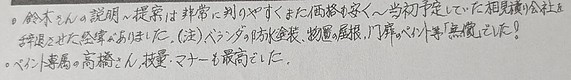 ○ 鈴木さんの説明〜提案は非常に判りやすくまた価格も安く〜当初予定していた相見積り会社を
辞退させた経緯がありました。(注)ベランダの防水塗装、物置の屋根、門扉のペイント等「無償」でした!
○ ペイント専属の高橋さん、技量・マナーも最高でした。